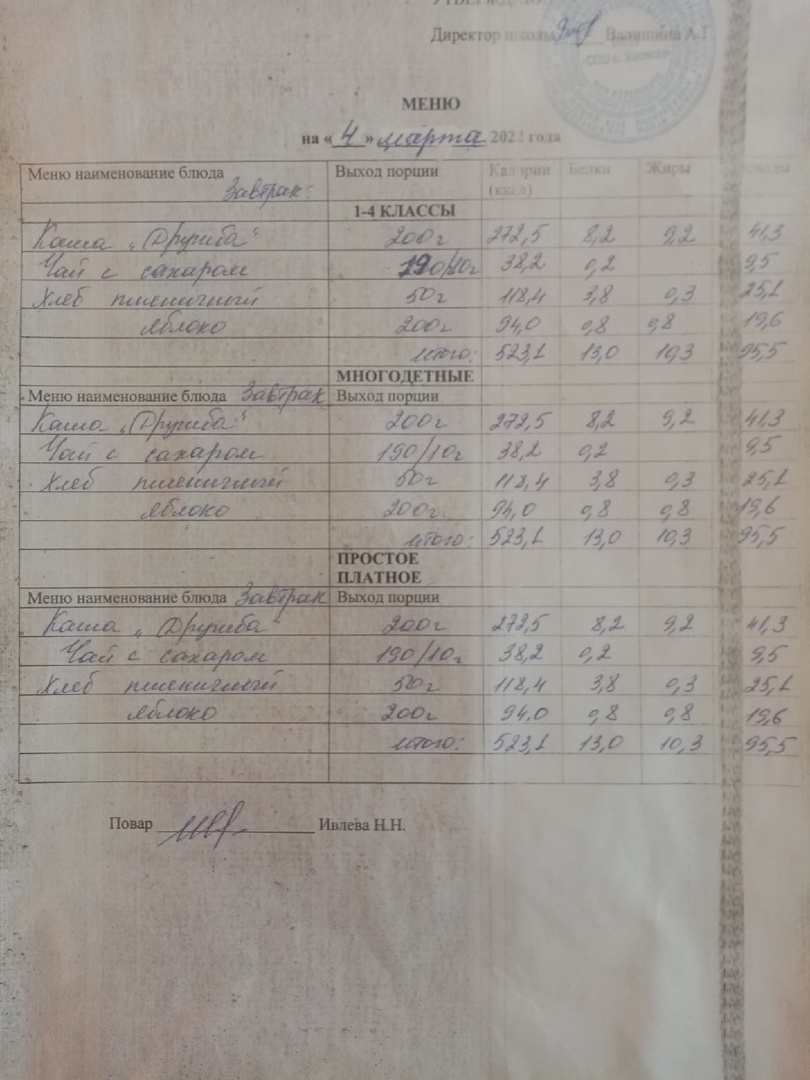 УТВЕРЖДЕНО:
Директор школы Валишина А.Г.
МЕНЮ
на « 4 » марта 202 года
Меню наименование блюда Завтрак: Выход порции Калории (ккал) Белки Жиры
1-4 КЛАССЫ
Каша „Дружба“ 200г 272,5 8,2 9,2 41,3
Чай с сахаром 190/10г 38,2 0,2 9,5
Хлеб пшеничный 50г 118,4 3,8 0,3 25,1
яблоко 200г 94,0 0,8 0,8 19,6
итого: 523,1 13,0 10,3 95,5
МНОГОДЕТНЫЕ
Меню наименование блюда Завтрак Выход порции
Каша „Дружба“ 200г 272,5 8,2 9,2 41,3
Чай с сахаром 190/10г 38,2 0,2 9,5
Хлеб пшеничный 50г 118,4 3,8 0,3 25,1
яблоко 200г 94,0 0,8 0,8 19,6
итого: 523,1 13,0 10,3 95,5
ПРОСТОЕ
ПЛАТНОЕ
Меню наименование блюда Завтрак Выход порции
Каша „Дружба“ 200г 272,5 8,2 9,2 41,3
Чай с сахаром 190/10г 38,2 0,2 9,5
Хлеб пшеничный 50г 118,4 3,8 0,3 25,1
яблоко 200г 94,0 0,8 0,8 19,6
итого: 523,1 13,0 10,3 95,5
Повар Ивлева Н.Н.